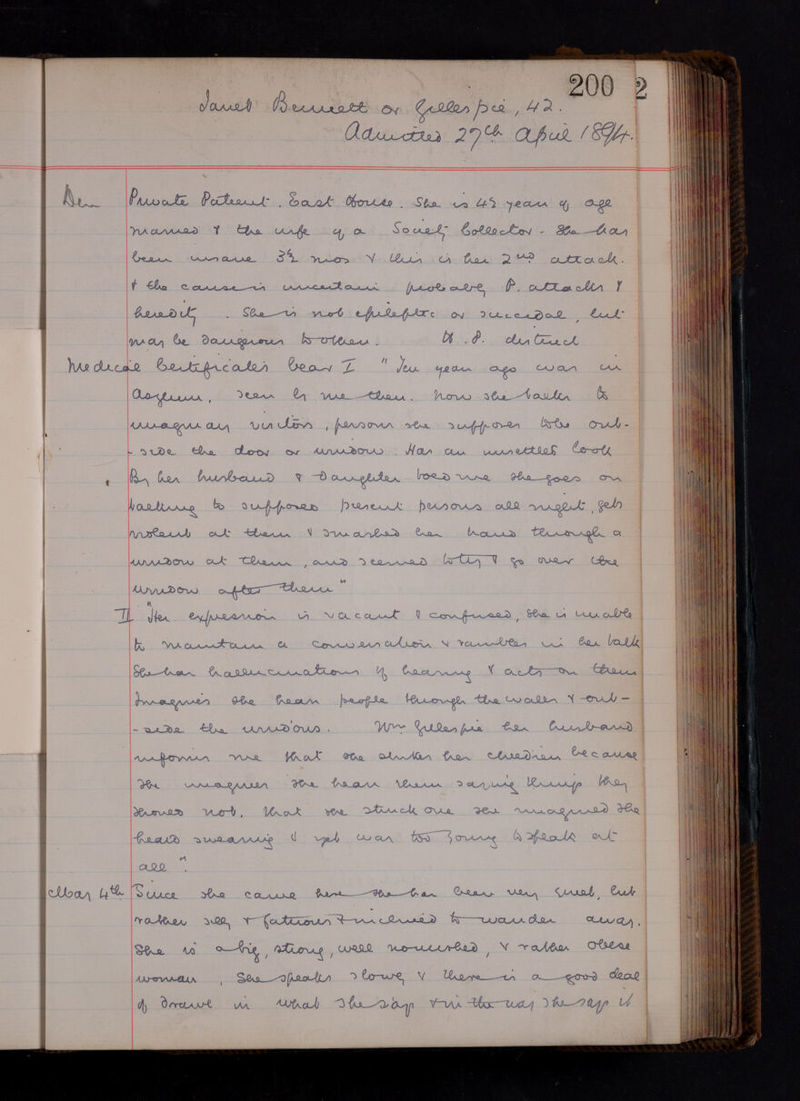 200 2
Janet Bennett or Gillespie, 42.
Admitted 27th April 1894.
Private Patient. East House. She is 42 years of age
married & the wife of a Society Collector - She has
been insane 3½ mos & this is her 2nd attack.
& the cause is uncertain probably P. attacks &
heredity. She is not epileptic or suicidal, but
may be dangerous to others. District
Medical Certificates bear I "Ten years ago was in
Asylum, seen by me then. Now she talks to
imaginary visitors, persons she supposes to be out-
- side the door or window. Has an unsettled look
By her husband & Daughter told me she goes on
talking to supposed present persons all night, gets
violent at them & smashed her hand through a
window at them, and seemed to try & go over the
window after them"
II "Her expression is vacant & confused, she is unable
to maintain a conversation & rambles in her talk
She has hallucinations of hearing & acts on them
Imagines she hears people through the walls & out-
- side the windows. Wm Gillespie her husband
informs me that she strikes her children because
she imagines she hears them saying things they
should not, that she struck one she imagined she
heard swearing & yet was too young to speak at
all".
May 4th Since she came here she has been very quiet, but
rather silly & fatuous & inclined to wander away.
She is a big, strong, well nourished, & rather obese
woman, She speaks slowly & there is a good deal
of drawl in what she says & in the way she says it